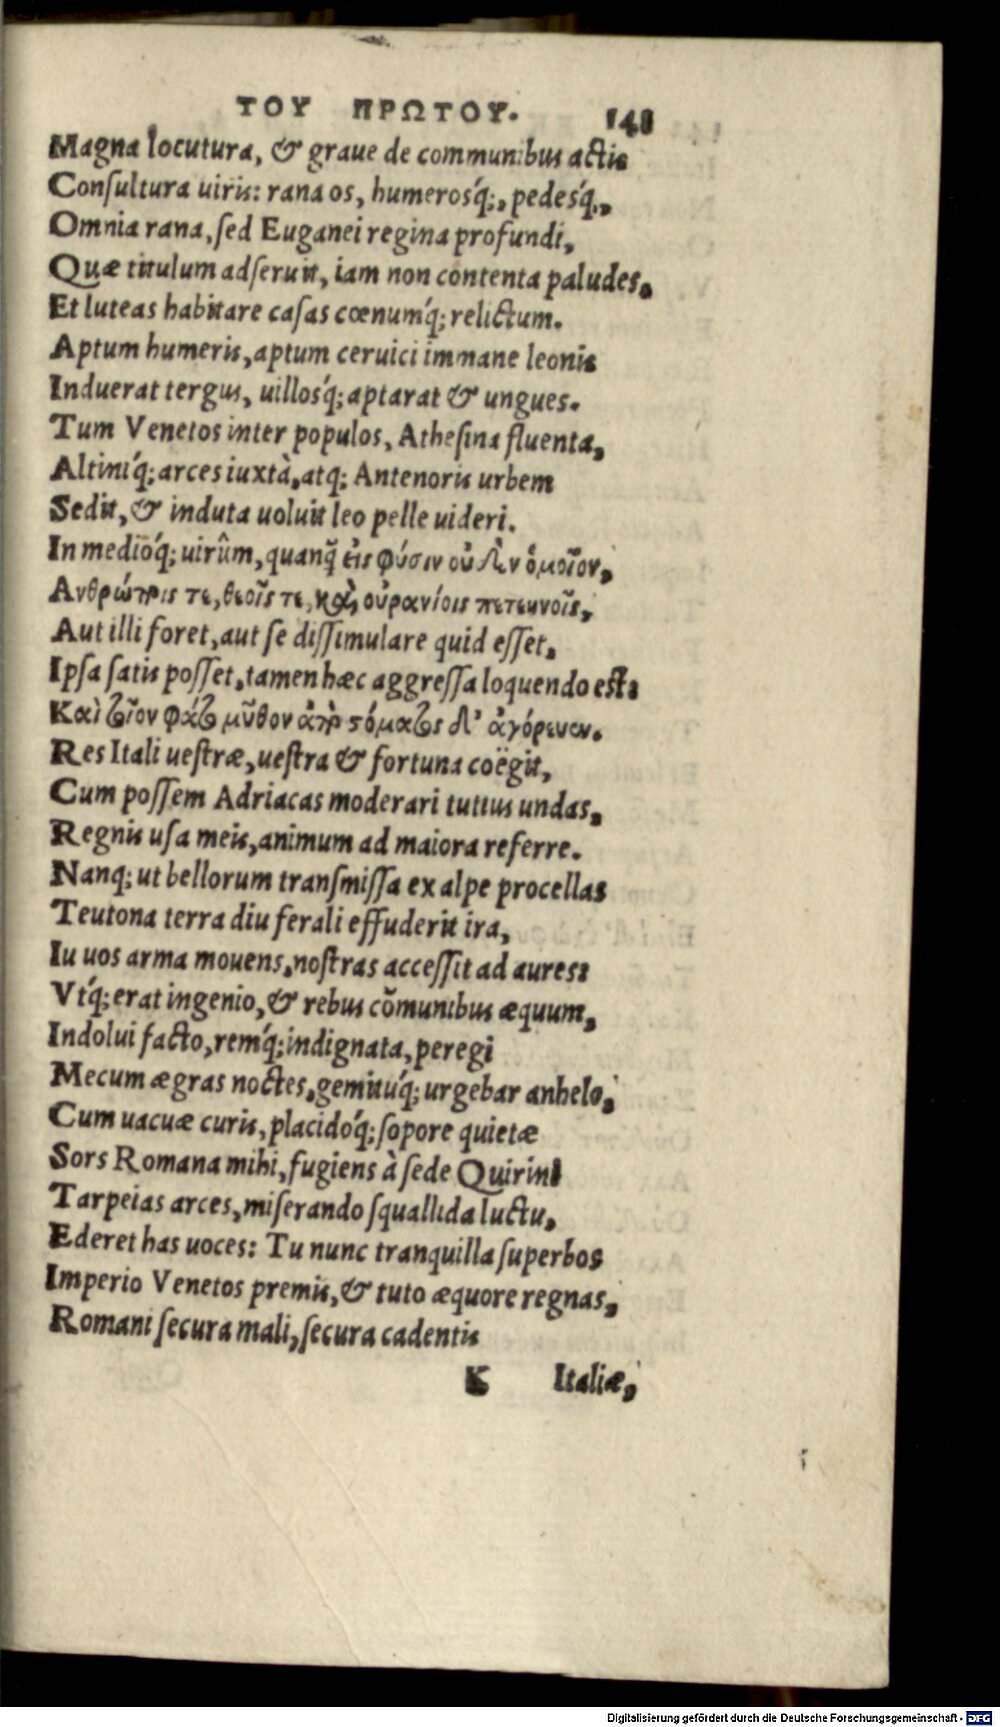 ΤΟΥ ΠΡΩΤΟΥ. 148
Magna locutura, & graue de communibus actis
Consultura uiris: rana os, humerosq́;, pedesq́,,
Omnia rana, sed Euganei regina profundi,
Quæ titulum adseruit, iam non contenta paludes,
Et luteas habitare casas cœnumq́; relictum.
Aptum humeris, aptum ceruici immane leonis
Induerat tergus, uillosq́; aptarat & ungues.
Tum Venetos inter populos, Athesina fluenta,
Altiniq́; arces iuxtà, atq; Antenoris urbem
Sedit, & induta uoluit leo pelle uideri.
In medióq; uirûm, quanq̃ εἰς φύσιν οὐδὲν ὁμοῖον,
Ανθρώποις τε, θεοῖς τε, καὶ οὐρανίοις πετεινοῖς,
Aut illi foret, aut se dissimulare quid esset,
Ipsa satis posset, tamen hæc aggressa loquendo est:
Καὶ τοῖον φάτο μῦθον ἀπὸ στόματος δ' ἀγόρευεν.
Res Itali uestræ, uestra & fortuna coëgit,
Cum possem Adriacas moderari tutius undas,
Regnis usa meis, animum ad maiora referre.
Nanq; ut bellorum transmissa ex alpe procellas
Teutona terra diu ferali effuderit ira,
Iu uos arma mouens, nostras accessit ad aures:
Vtq́; erat ingenio, & rebus cõmunibus æquum,
Indolui facto, remq́; indignata, peregi
Mecum ægras noctes, gemituq́; urgebar anhelo,
Cum uacuæ curis, placidóq; sopore quietæ
Sors Romana mihi, fugiens à sede Quirini
Tarpeias arces, miserando squallida luctu,
Ederet has uoces: Tu nunc tranquilla superbos
Imperio Venetos premis, & tuto æquore regnas,
Romani secura mali, secura cadentis
K Italiæ,
Digitalisierung gefördert durch die Deutsche Forschungsgemeinschaft - DFG